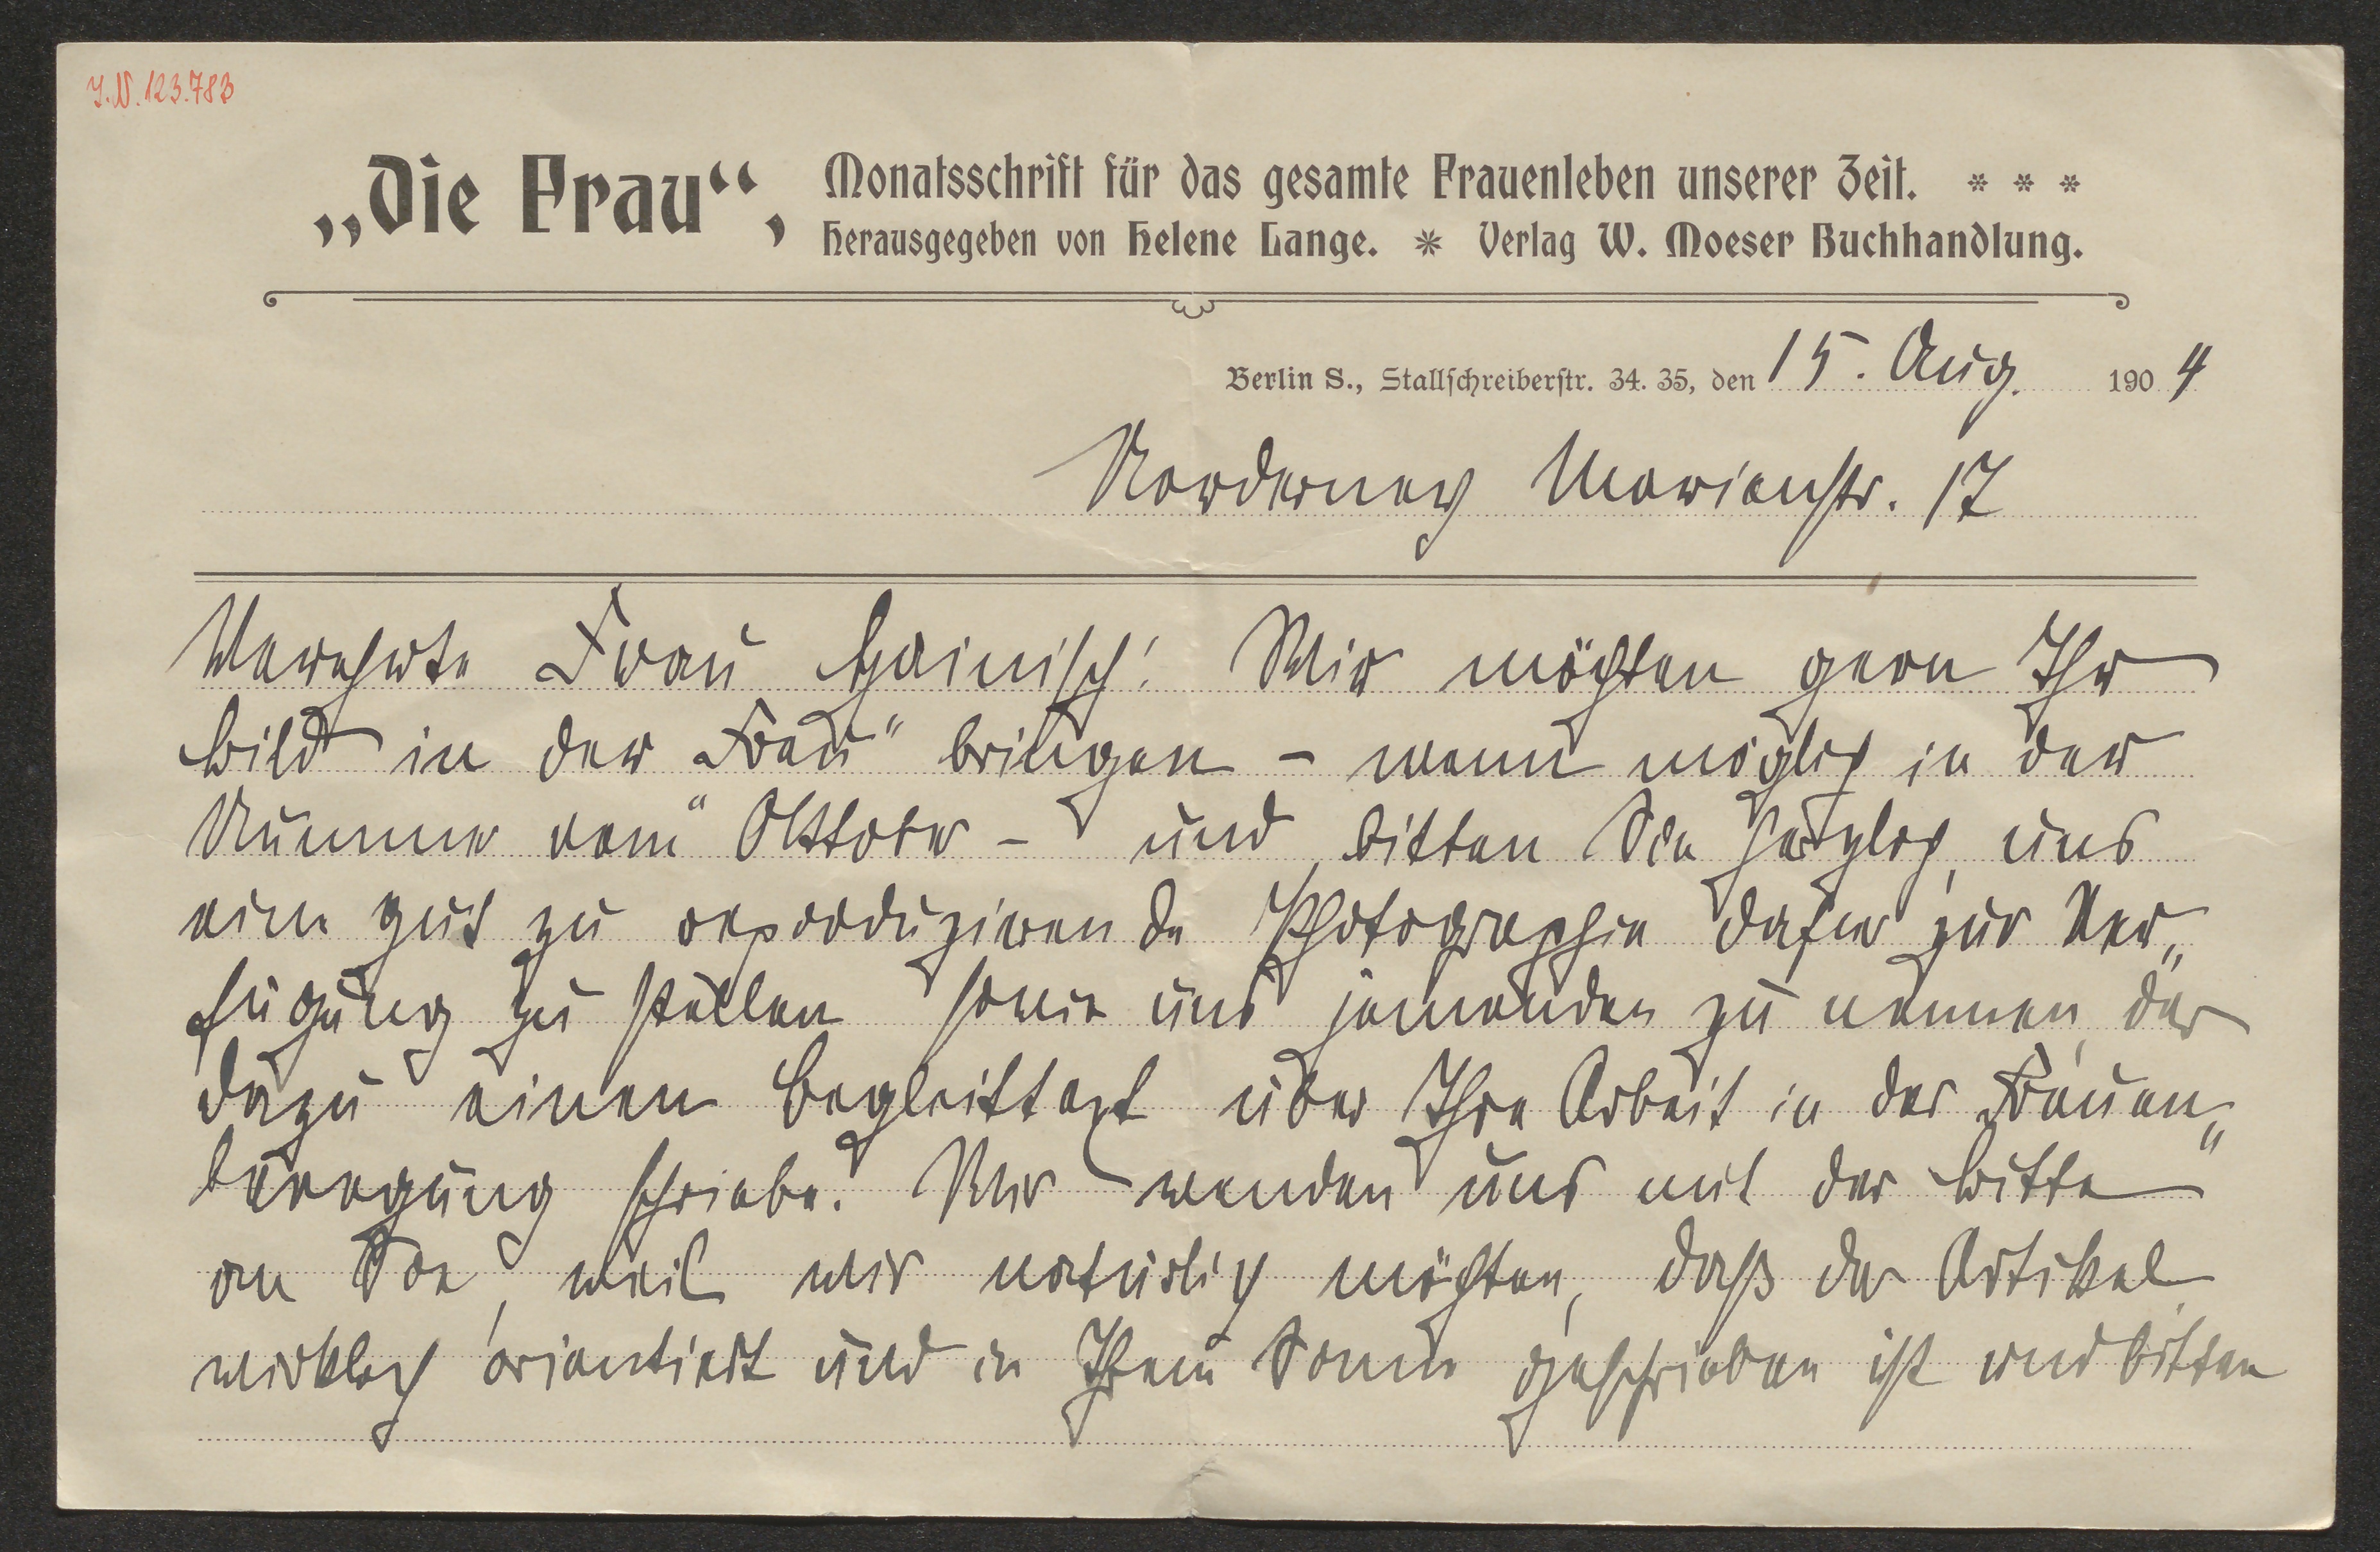 J.N. 123.783
„Die Frau“,
Monatsschrift für das gesamte Frauenleben unserer Zeit. * * *
Herausgegeben von Helene Lange. * Verlag W. Moeser Buchhandlung.
Berlin S., Stallschreiberstr. 34. 35, den 15. Aug. 1904
Norderney Marienstr. 17
Verehrte Frau Hainisch! Wir möchten gern Ihr
Bild in der „Frau“ bringen – wenn möglich in der
Nummer vom Oktober – und bitten Sie herzlich, uns
eine gut zu reproduzierende Photographie dafür zur Ver„
fügung zu stellen sowie uns jemanden zu nennen, der
dazu einen Begleittext über Ihre Arbeit in der Frauen„
bewegung schriebe. Wir wenden uns mit der Bitte
an Sie, weil wir natürlich möchten, daß der Artikel
wirklich orientiert und in Ihrem Sinne geschrieben ist und bitten